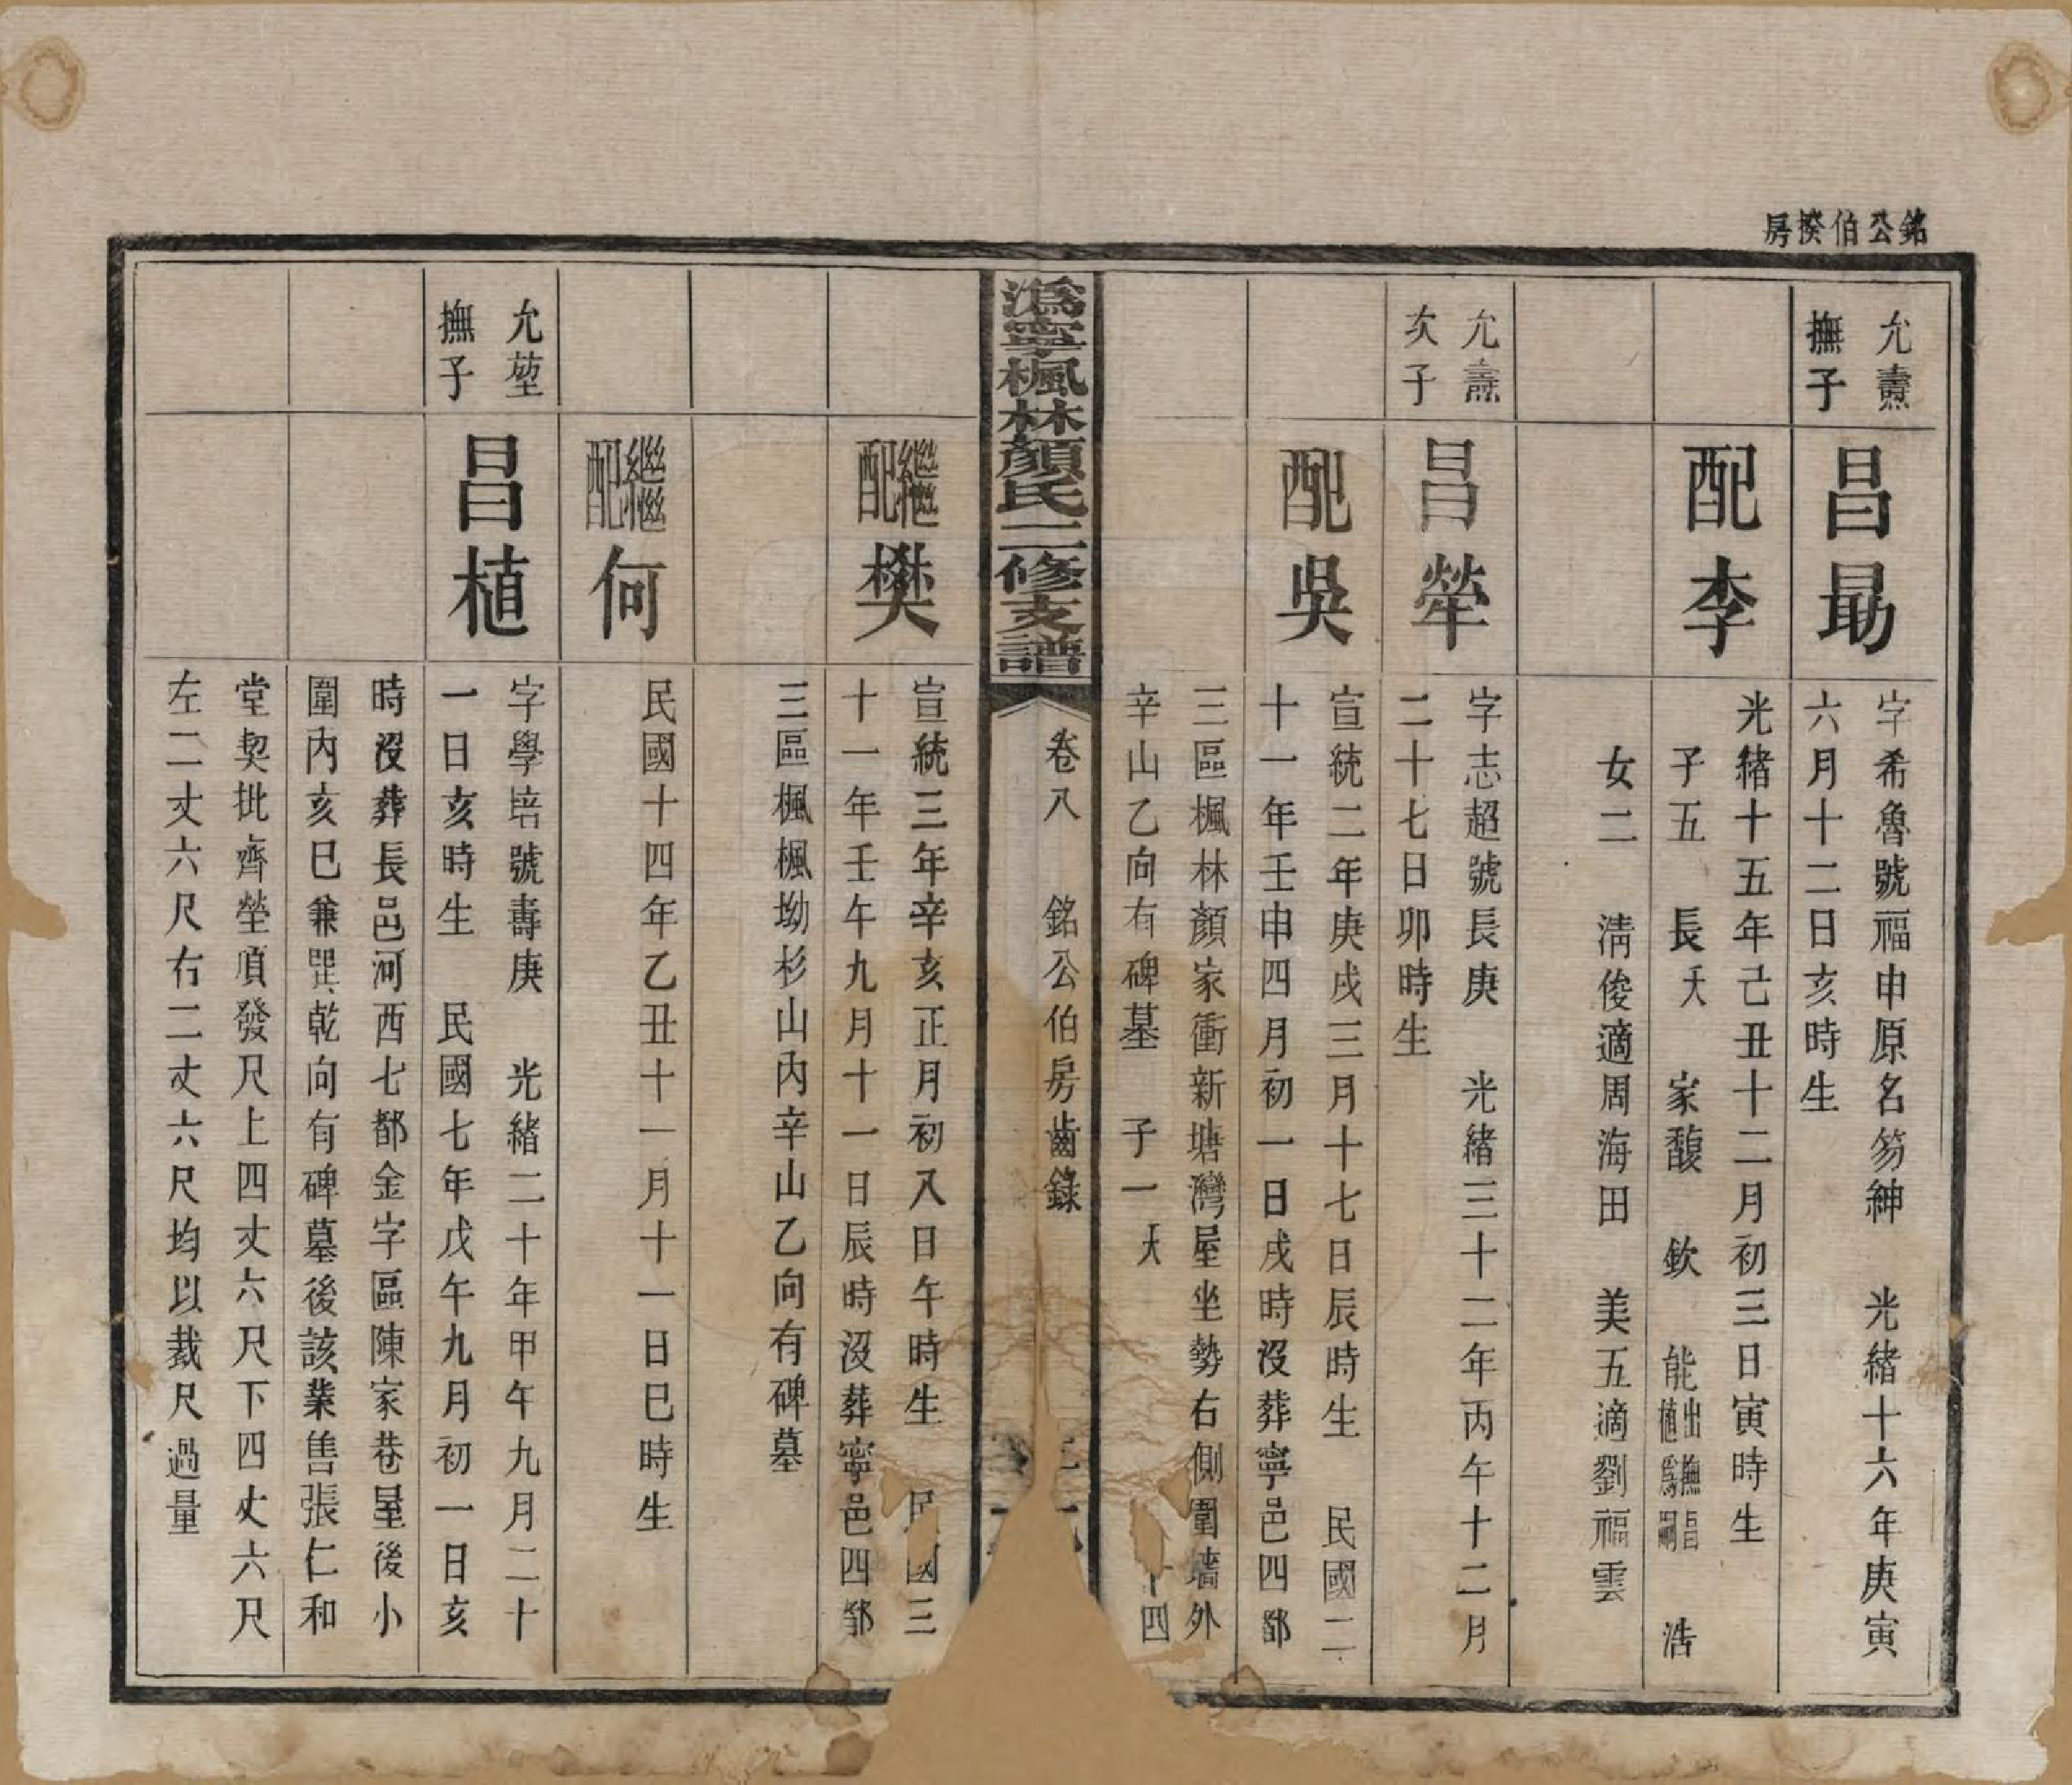 銘公伯揆房
允燾
撫子
昌勗
字希魯號福申原名笏紳　光緒十六年庚寅
六月十二日亥時生
配李
光緒十五年己丑十二月初三日寅時生
子五　長夭　家馥　欽　能出撫昌植為嗣　浩
女二　淸俊適周海田　美五適劉福雲
允燾
次子
昌犖
字志超號長庚　光緒三十二年丙午十二月
二十七日卯時生
配吳
宣統二年庚戌三月十七日辰時生　民國二
十一年壬申四月初一日戌時沒葬寧邑四都
三區楓林顏家衝新塘灣屋坐勢右側圍墻外
辛山乙向有碑墓　子一夭
十四
溈寧楓林顏氏二修支譜
卷八　銘公伯房齒錄
繼配樊
宣統三年辛亥正月初八日午時生　民國三
十一年壬午九月十一日辰時沒葬寧邑四都
三區楓楓坳杉山內辛山乙向有碑墓
繼配何
民國十四年乙丑十一月十一日巳時生
允堃
撫子
昌植
字學培號壽庚　光緒二十年甲午九月二十
一日亥時生　民國七年戊午九月初一日亥
時沒葬長邑河西七都金字區陳家巷屋後小
圍內亥巳兼巽乾向有碑墓後該業售張仁和
堂契批齊塋頂發尺上四丈六尺下四丈六尺
左二丈六尺右二丈六尺均以裁尺過量